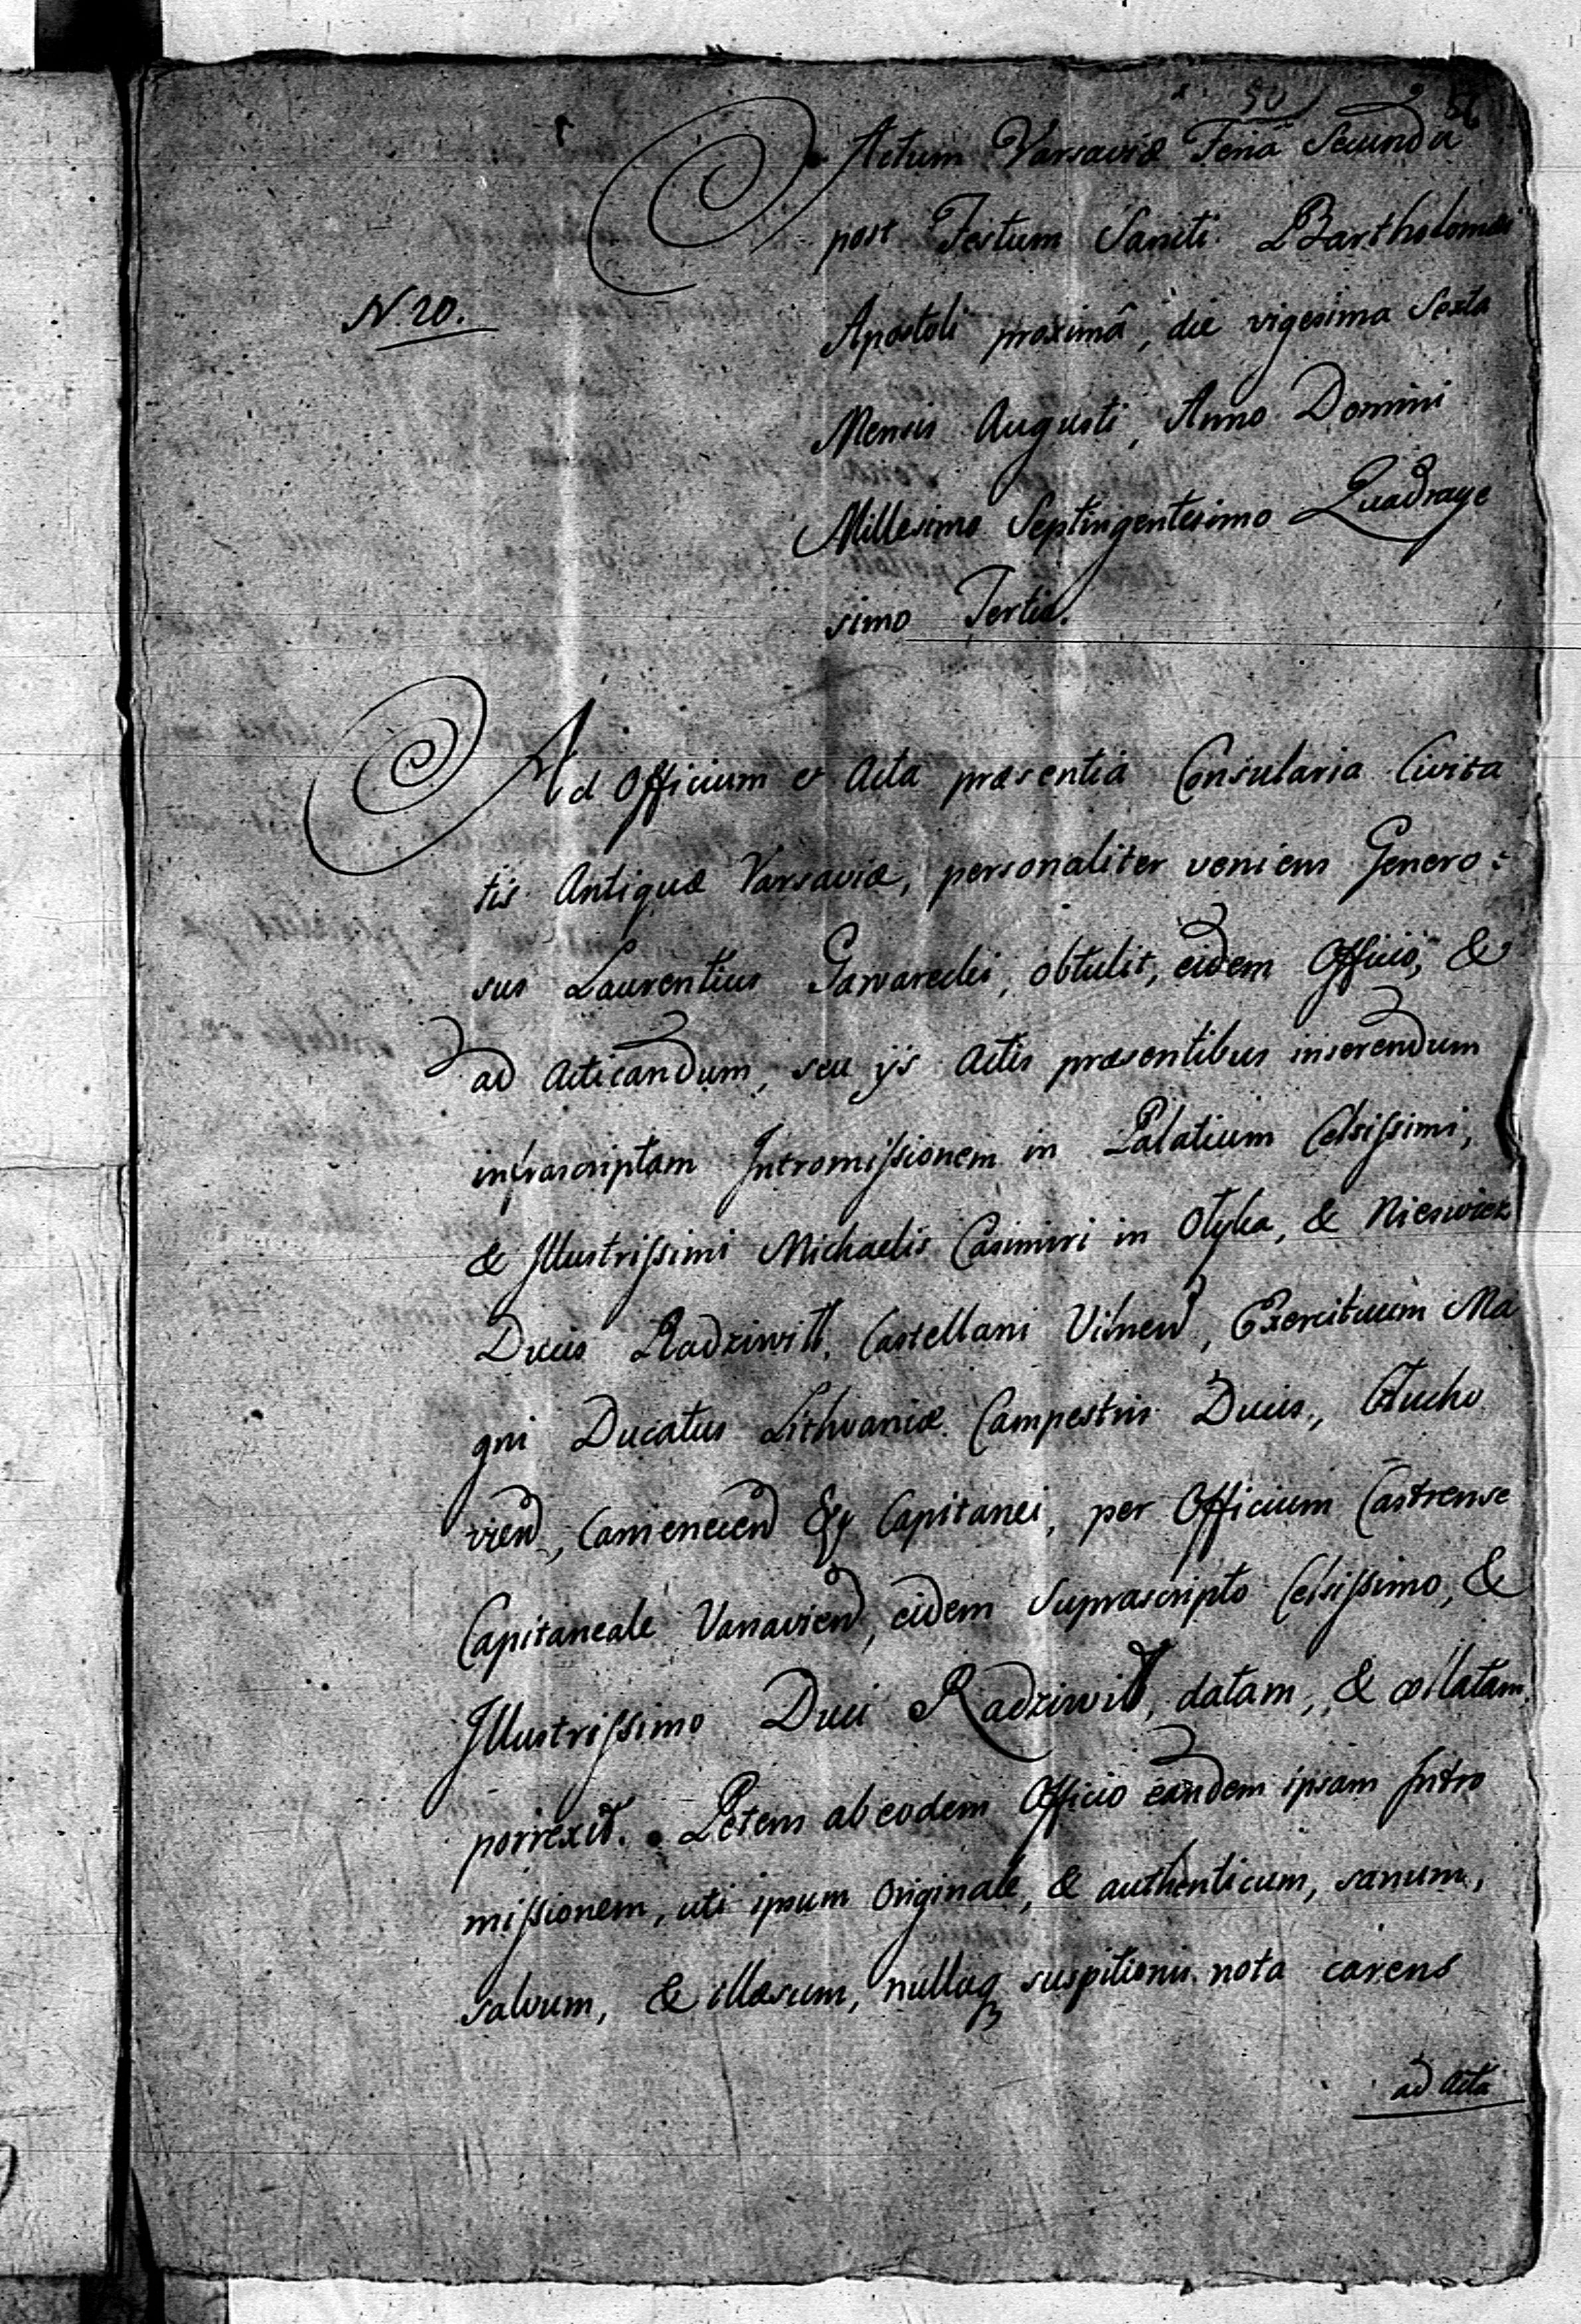 50
56
Actum Varsaviæ Feriâ Secundâ
post Festum Sancti Bartholomæi
N. 20.
Apostoli proximâ, die vigesima Sexta
Mensis Augusti, Anno Domini
Millesimo Septingentesimo Quadrage
simo Tertio.
Ad Officium et Acta præsentia Consularia Civita
tis Antiquæ Varsaviæ, personaliter veniens Genero:
sus Laurentius obtulit, eidem Officio, &
ad Acticandum, seu ijs Actis præsentibus inserendum
infrascriptam Intromissionem in Palatium Celsissimi,
& Illustrissimi Michaelis Casimiri in Ołyka, & Nieswicz
Ducis Radziwiłł, Castellani Vilnen, Exercituum Ma
gni Ducatus Lithvaniæ Campestris Ducis, Człucho
vien, Camenecen & Capitanei, per Officium Castrense
Capitaneale Varsavien, eidem Suprascripto Celsissimo, &
Illustrissimo Duci Radziwiłł, datam, & collatam
porrexit. Petens ab eodem Officio eandem ipsam Intro
missionem, uti ipsum Originale, & authenticum, sanum,
salvum, & illæsum, nullaq suspitionis nota carens
ad Acta